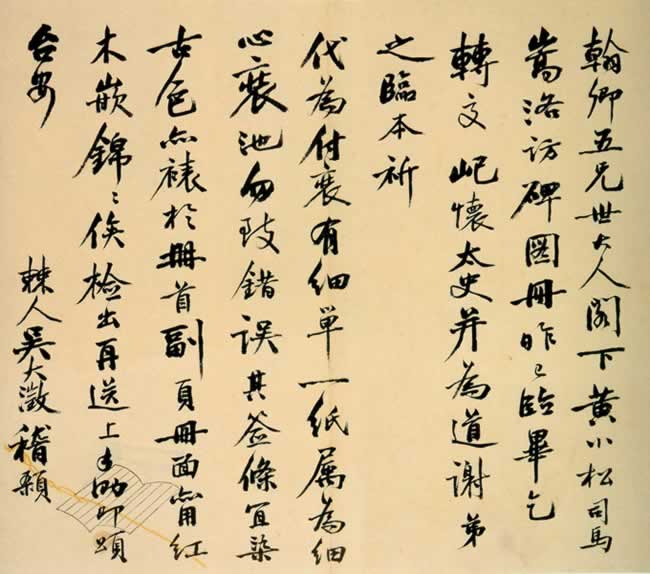 翰卿五兄世大人閣下黃小松司馬
嵩洛訪碑圖冊昨已臨畢乞
轉交 屺懷太史并為道謝弟
之臨本祈
代為付裝有細單一紙属為細
心裝池勿致錯誤其签條宜染
古色亦裱於冊首副頁冊面亦用紅
木嵌錦錦俟檢出再送上手泐叩頌
台安
棘人吳大澂稽顙